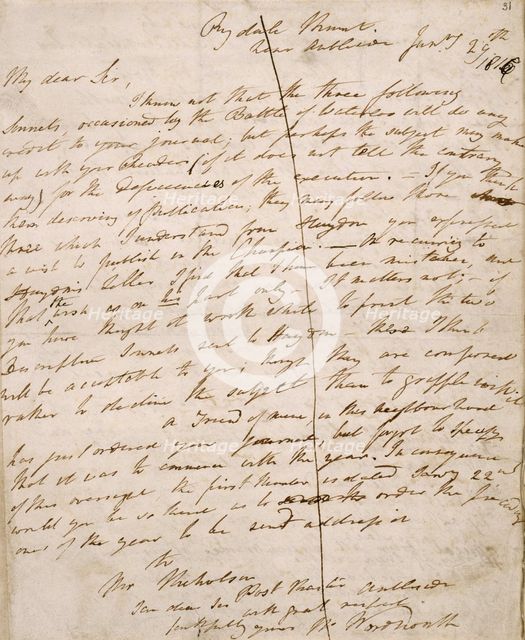 31
Rydale Mount
near Ambleside Janry 29th
1816
My dear Sir,
I know not that the three following
Sonnets, occasioned by the Battle of Waterloo will do any
credit to your journal; but perhaps the subject may make
up with your Readers (if it does not tell the contrary
way) for the Deficiencies of the execution. — If you think
them deserving of publication, they may follow those
three which I understand from Haydon you expressed
a wish to publish in the Champion. — On recurring to
Haydon's Letter I find that I have been mistaken and
that the was only It matters not; if
you have thought it worth while to print the two
Sonnets sent to Haydon these I think
will be acceptable to you; though they are composed
rather to decline the subject than to grapple with it
A Friend of mine in this neighbourhood
has just ordered your journal but forgot to specify
that it was to commence with the year. In consequence
of this oversight, the first Number is dated Janry 22nd
would you be so kind as to order the preceding
ones of the year to be send addressed
to
Mr Nicholson
Post Master Ambleside
I am dear Sir with great respect
faithfully yours
Wm Wordsworth
Heritage
Images